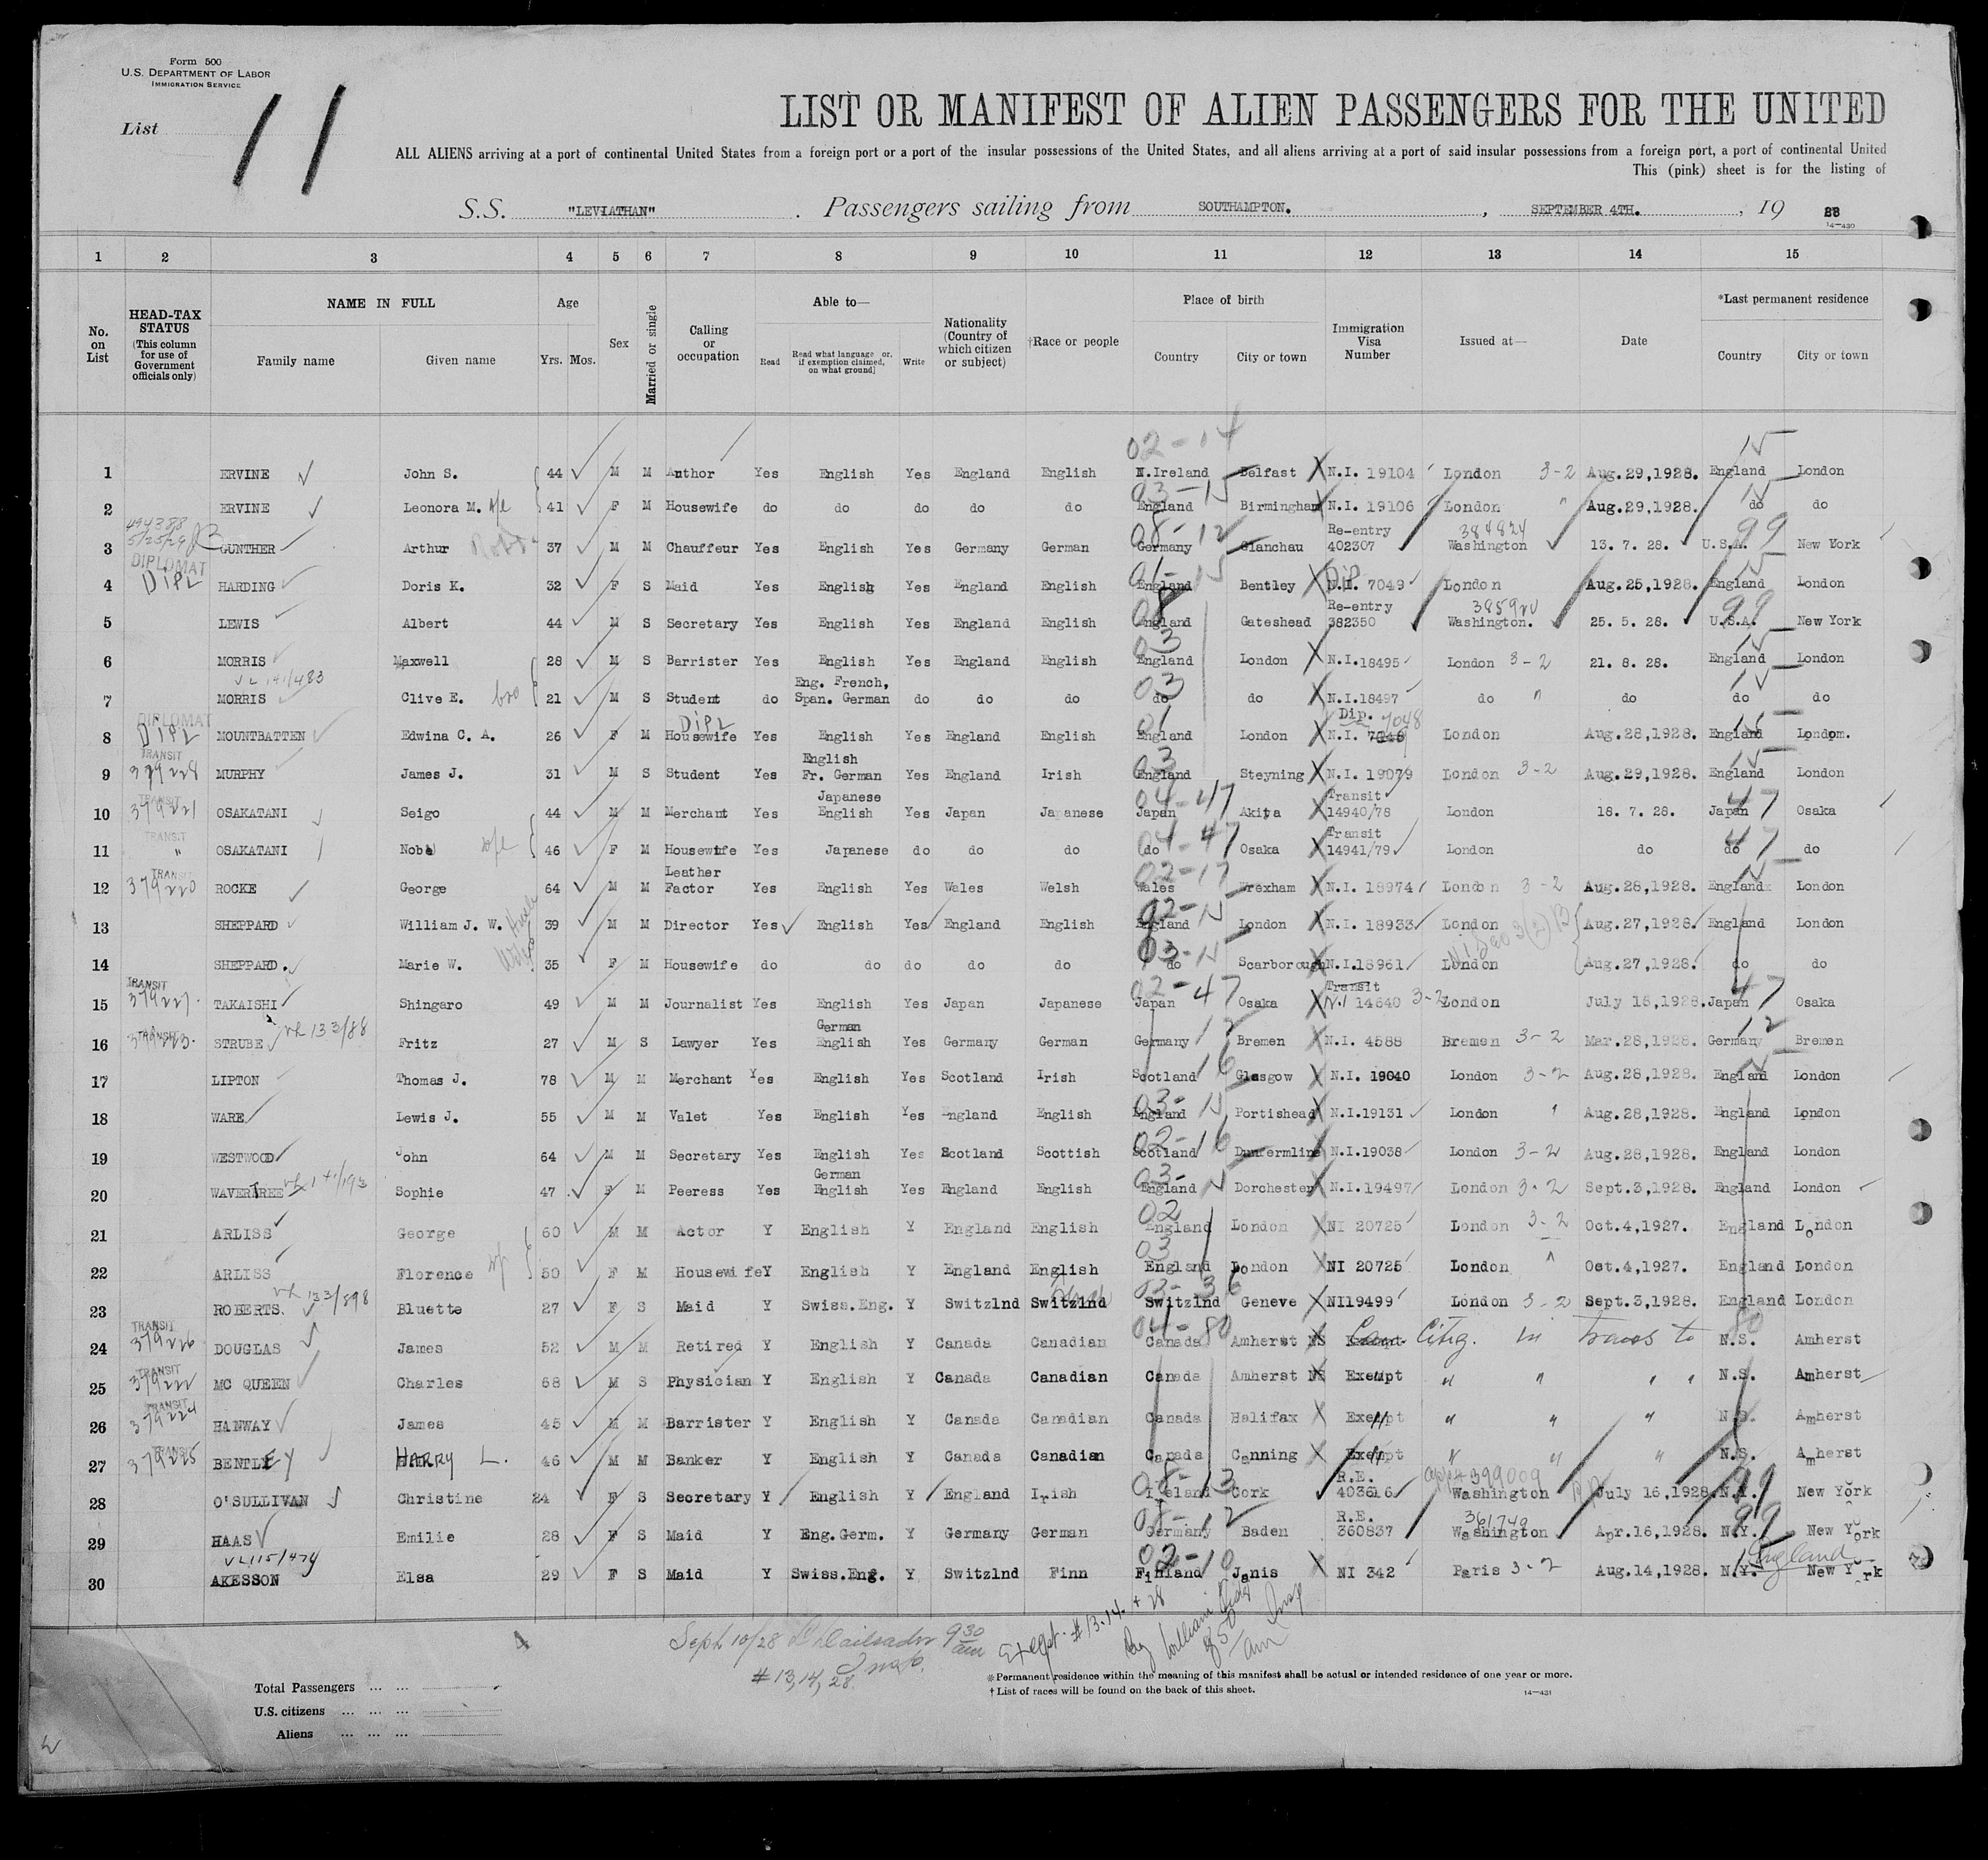 Form 500
U.S. DEPARTMENT OF LABOR
IMMIGRATION SERVICE
List 11
LIST OR MANIFEST OF ALIEN PASSENGERS FOR THE UNITED
ALL ALIENS arriving at a port of continental United States from a foreign port or a port of the insular possessions of the United States, and all aliens arriving at a port of said insular possessions from a foreign port, a port of continental United
This (pink) sheet is for the listing of
S.S. "LEVIATHAN" . Passengers sailing from SOUTHAMPTON. , SEPTEMBER 4TH. , 19 28
14—430
1 2 3 4 5 6 7 8 9 10 11 12 13 14 15
No. on List
HEAD-TAX STATUS (This column for use of Government officials only)
NAME IN FULL
Family name Given name
Age
Yrs. Mos.
Sex
Married or single
Calling or occupation
Able to—
Read Read what language or, if exemption claimed, on what ground] Write
Nationality (Country of which citizen or subject)
†Race or people
Place of birth
Country City or town
Immigration Visa Number
Issued at—
Date
*Last permanent residence
Country City or town
02-14 15
1 ERVINE John S. 44 M M Author Yes English Yes England English N.Ireland Belfast N.I. 19104 London 3-2 Aug.29,1928. England London
03-15 15
2 ERVINE Leonora M. 41 F M Housewife do do do do do England Birmingham N.I. 19106 London " Aug.29,1928. do do
494388 5/25/29 08-12 Re-entry 384824 99
3 GUNTHER Arthur 37 M M Chauffeur Yes English Yes Germany German Germany Glanchau 402307 Washington 13. 7. 28. U.S.A. New York
DIPLOMAT 01-15 Dip 15
4 DIPL HARDING Doris K. 32 F S Maid Yes English Yes England English England Bentley N.I. 7049 London Aug.25,1928. England London
08 Re-entry 99
5 LEWIS Albert 44 M S Secretary Yes English Yes England English England Gateshead 382350 Washington. 25. 5. 28. U.S.A. New York
03 15
6 MORRIS Maxwell 28 M S Barrister Yes English Yes England English England London N.I.18495 London 3-2 21. 8. 28. England London
VL 141/483 Eng. French, 03 15
7 MORRIS Clive E. bro 21 M S Student do Span. German do do do do do N.I.18497 do " do do do
DIPLOMAT DIPL 01 Dip. 7048 15
8 DIPL MOUNTBATTEN Edwina C. A. 26 F M Housewife Yes English Yes England English England London N.I. London Aug.28,1928. England London.
TRANSIT English 03 15
9 379228 MURPHY James J. 31 M S Student Yes Fr. German Yes England Irish England Steyning N.I. 19079 London 3-2 Aug.29,1928. England London
TRANSIT Japanese 04-47 Transit 47
10 379221 OSAKATANI Seigo 44 M M Merchant Yes English Yes Japan Japanese Japan Akita 14940/78 London 18. 7. 28. Japan Osaka
TRANSIT 04-47 Transit 47
11 " OSAKATANI Nobu 46 F M Housewife Yes Japanese do do do do Osaka 14941/79 London do do do
TRANSIT Leather 02-17 15
12 379220 ROCKE George 64 M M Factor Yes English Yes Wales Welsh Wales Wrexham N.I. 18974 London 3-2 Aug.28,1928. England London
02-15
13 SHEPPARD William J. W. 39 M M Director Yes English Yes England English England London N.I. 18933 London Aug.27,1928. England London
03-15
14 SHEPPARD. Marie W. 35 F M Housewife do do do do do do Scarborough N.I.18961 London Aug.27,1928. do do
TRANSIT 02-47 Transit 47
15 379227. TAKAISHI Shingaro 49 M M Journalist Yes English Yes Japan Japanese Japan Osaka N.I 14640 3-2 London July 16,1928. Japan Osaka
TRANSIT VL 133/88 German 12 12
16 379223. STRUBE Fritz 27 M S Lawyer Yes English Yes Germany German Germany Bremen N.I. 4588 Bremen 3-2 Mar.28,1928. Germany Bremen
16 15
17 LIPTON Thomas J. 78 M M Merchant Yes English Yes Scotland Irish Scotland Glasgow N.I. 19040 London 3-2 Aug.28,1928. England London
03-15
18 WARE Lewis J. 55 M M Valet Yes English Yes England English England Portishead N.I.19131 London " Aug.28,1928. England London
02-16
19 WESTWOOD John 64 M M Secretary Yes English Yes Scotland Scottish Scotland Dunfermline N.I.19038 London 3-2 Aug.28,1928. England London
VL 141/193 German 03-15
20 WAVERTREE Sophie 47 F M Peeress Yes English Yes England English England Dorchester N.I.19497 London 3-2 Sept.3,1928. England London
02
21 ARLISS George 60 M M Actor Y English Y England English England London NI 20725 London 3-2 Oct.4,1927. England London
03
22 ARLISS Florence 50 F M Housewife Y English Y England English England London NI 20725 London " Oct.4,1927. England London
VL 133/898 03-36
23 ROBERTS. Bluette 27 F S Maid Y Swiss.Eng. Y Switzlnd Switzlnd Switzlnd Geneve NI19499 London 3-2 Sept.3,1928. England London
TRANSIT 04-80 80
24 379226 DOUGLAS James 52 M M Retired Y English Y Canada Canadian Canada Amherst NS Can. Citiz. in Trans to N.S. Amherst
TRANSIT
25 379222 MC QUEEN Charles 68 M S Physician Y English Y Canada Canadian Canada Amherst NS Exempt " " " " N.S. Amherst
TRANSIT
26 379224 HANWAY James 45 M M Barrister Y English Y Canada Canadian Canada Halifax Exempt " " " N.S. Amherst
TRANSIT
27 379225 BENTLEY HARRY L. 46 M M Banker Y English Y Canada Canadian Canada Canning Exempt " " " N.S. Amherst
08-13 R.E. 399009 99
28 O'SULLIVAN Christine 24 F S Secretary Y English Y England Irish Ireland Cork 403616 Washington July 16,1928 N.Y. New York
08-12 R.E. 361749 99
29 HAAS Emilie 28 F S Maid Y Eng.Germ. Y Germany German Germany Baden 360837 Washington Apr.16,1928. N.Y. New York
VL115/474 02-10 15 England
30 AKESSON Elsa 29 F S Maid Y Swiss.Eng. Y Switzlnd Finn Finland Janis NI 342 Paris 3-2 Aug.14,1928. N.Y. New York
Sept 10/28 9 30 am
#13,14,28.
Except. #13.14. + 28
By William
8 50 am
Total Passengers ... ...
U.S. citizens ... ... ...
Aliens ... ... ...
*Permanent residence within the meaning of this manifest shall be actual or intended residence of one year or more.
†List of races will be found on the back of this sheet. 14—431